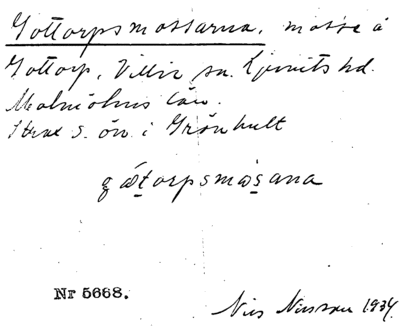 Gottorpsmossarna, mosse å
Gottorp, Villie sn. Ljunits hd.
Malmöhus län.
Strax s. om i Grönhult
gåtorpsmåsana
Nr 5668.
Nils Nilsson 1934.